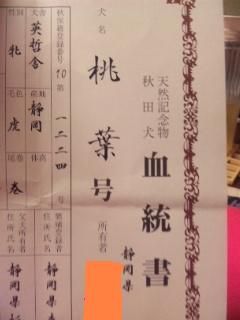 天然記念物
秋田犬
血統書
犬名
桃葉号
所有者
静岡県
秋保籍登録番号
10第一二二四号
犬舎
英哲舎
産地
静岡
体高
性別
牝
毛色
虎
尾巻
巻
繁殖登録者
住所氏名
静岡県
父犬所有者
住所氏名
静岡県